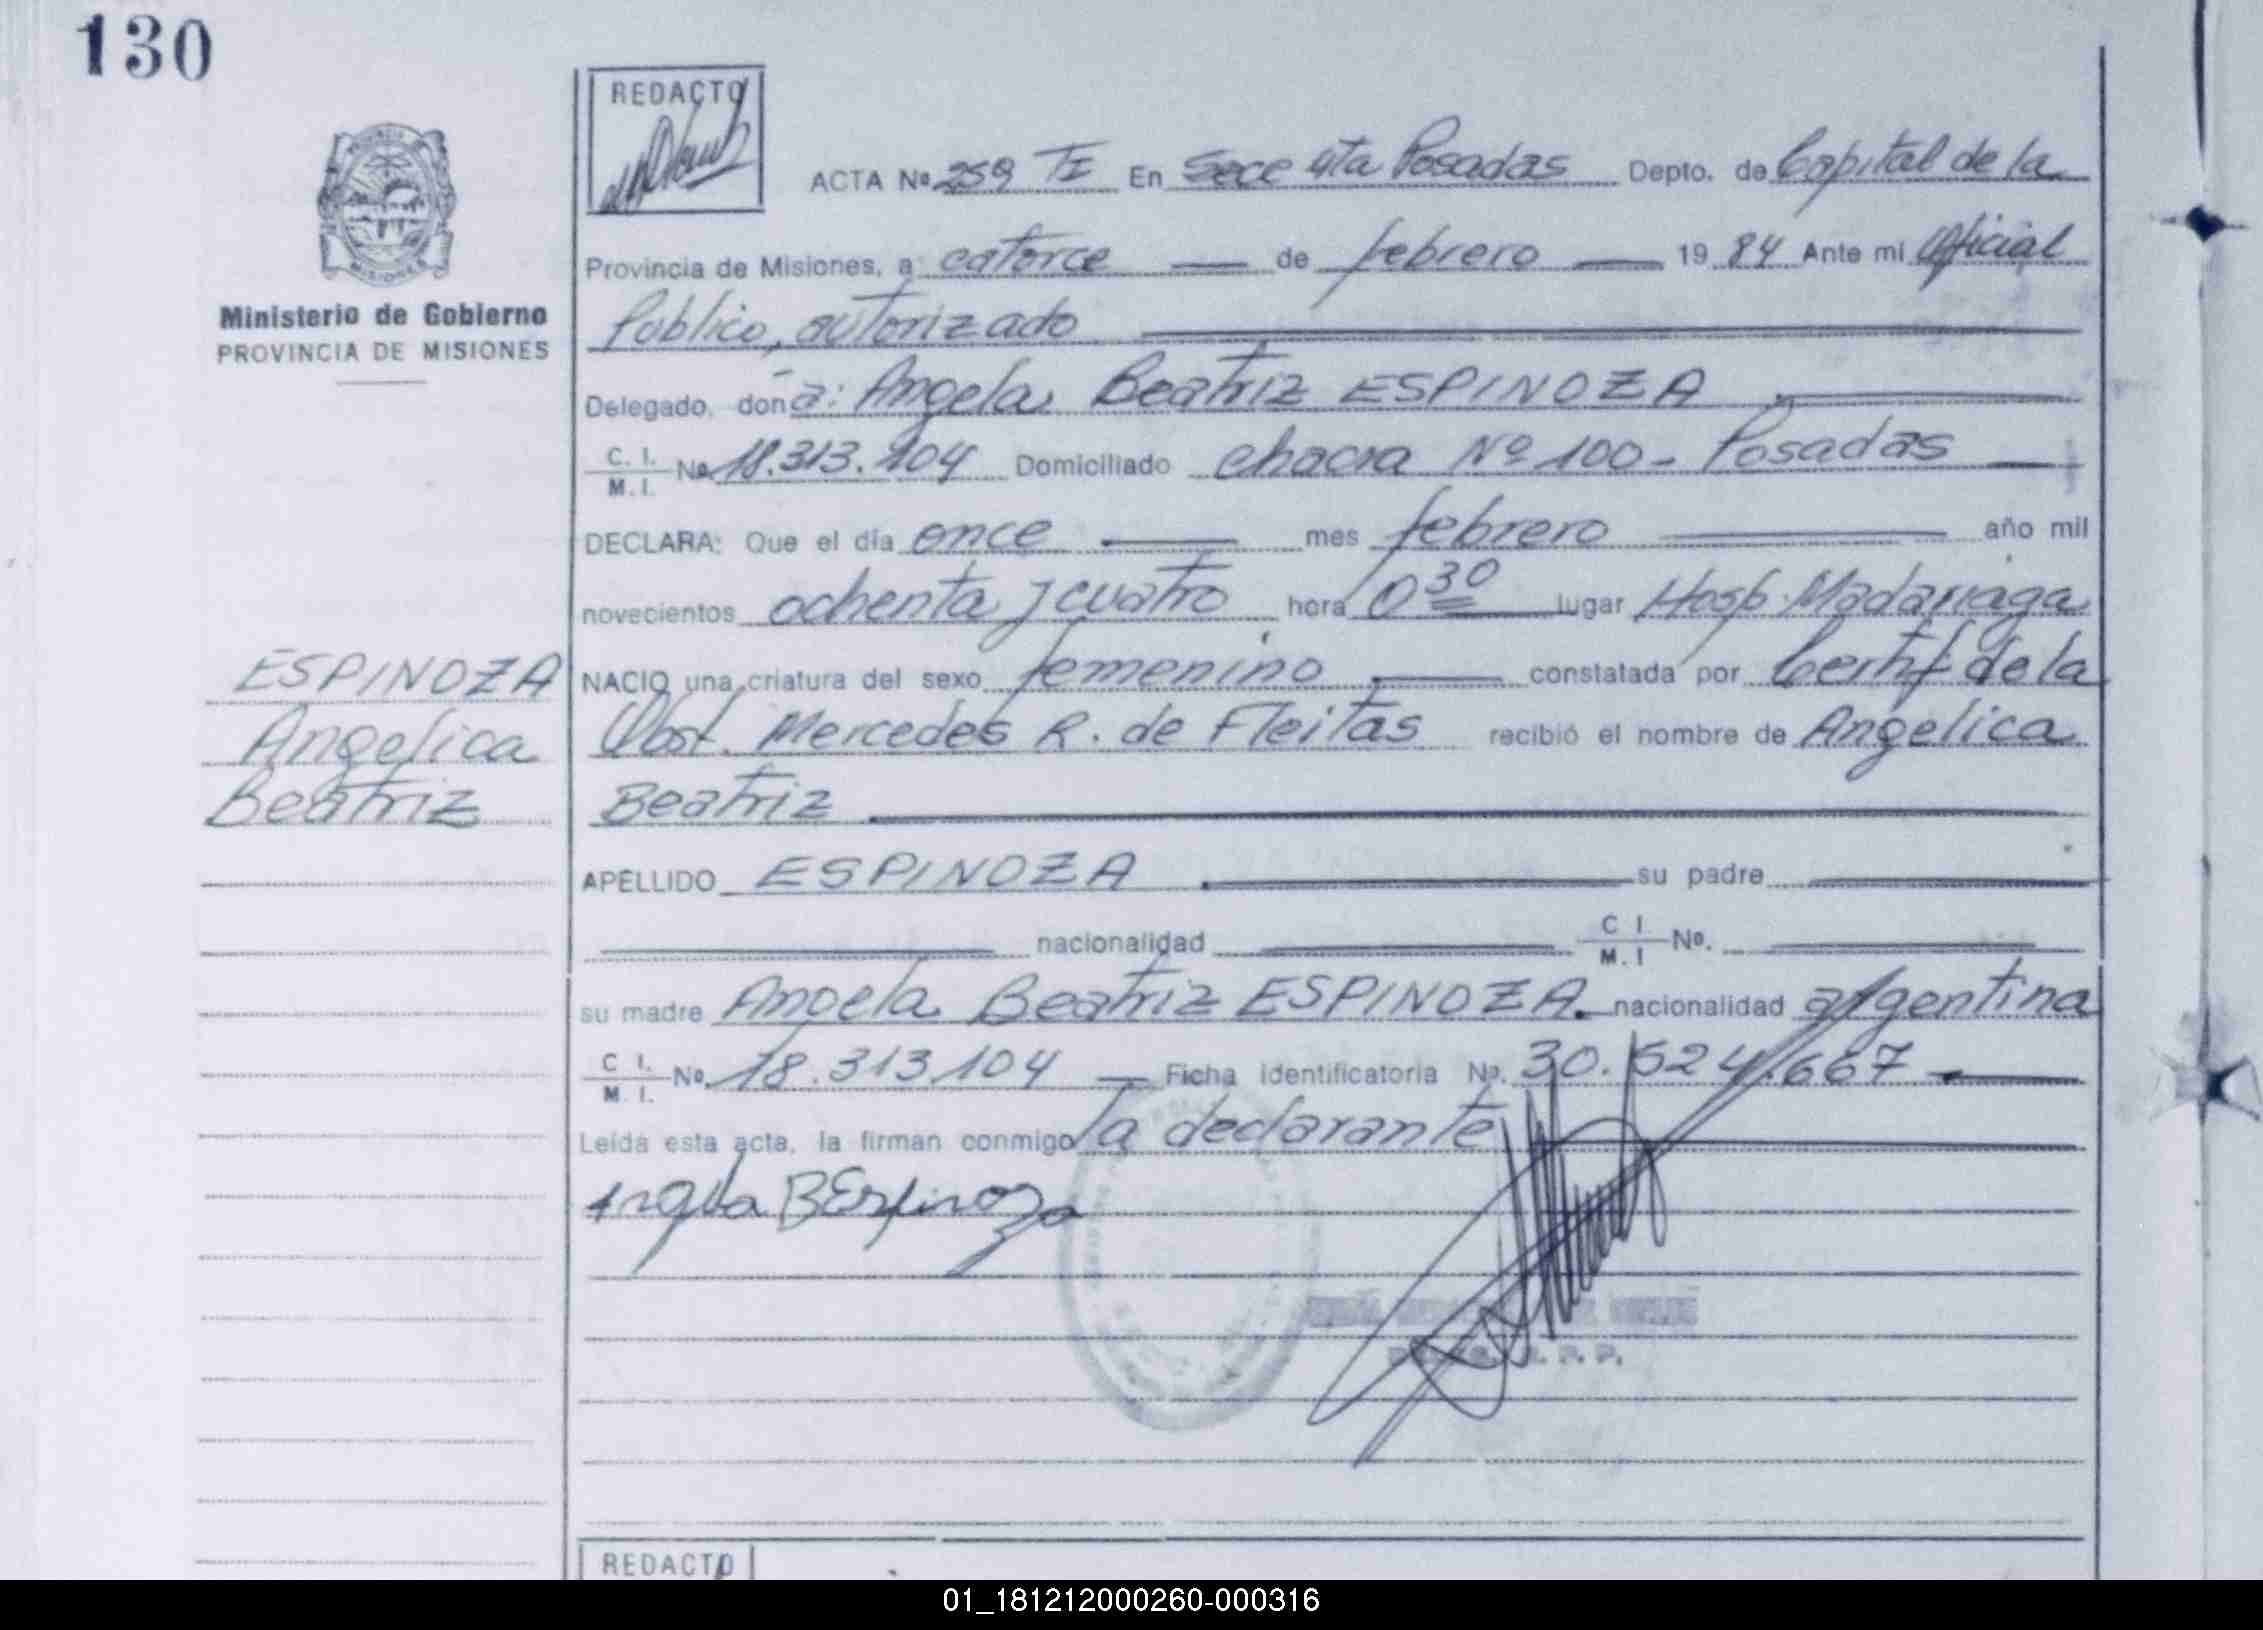 130
REDACTO
ACTA Nº 259 TI En Secc 4ta Posadas Depto. de Capital de la
Provincia de Misiones, a catorce de febrero 19 84 Ante mi Oficial
Público, autorizado
Ministerio de Gobierno
PROVINCIA DE MISIONES
MISIONES
Delegado, doña: Angela Beatriz ESPINOZA
C. I.
M. I. Nº 18.313.104 Domiciliado chacra Nº 100 - Posadas
DECLARA: Que el día once mes febrero año mil
novecientos ochenta y cuatro hora 0 30 lugar Hosp. Madariaga
NACIO una criatura del sexo femenino constatada por Certif de la
Obst. Mercedes R. de Fleitas recibió el nombre de Angelica
Beatriz
ESPINOZA
Angelica
Beatriz
APELLIDO ESPINOZA su padre
nacionalidad C I
M. I Nº.
su madre Angela Beatriz ESPINOZA. nacionalidad argentina
C I.
M. I. Nº. 18.313.104 Ficha identificatoria Nº. 30.524.667
Leída esta acta, la firman conmigo la declarante
Angela B Espinoza
REDACTO
01_181212000260-000316